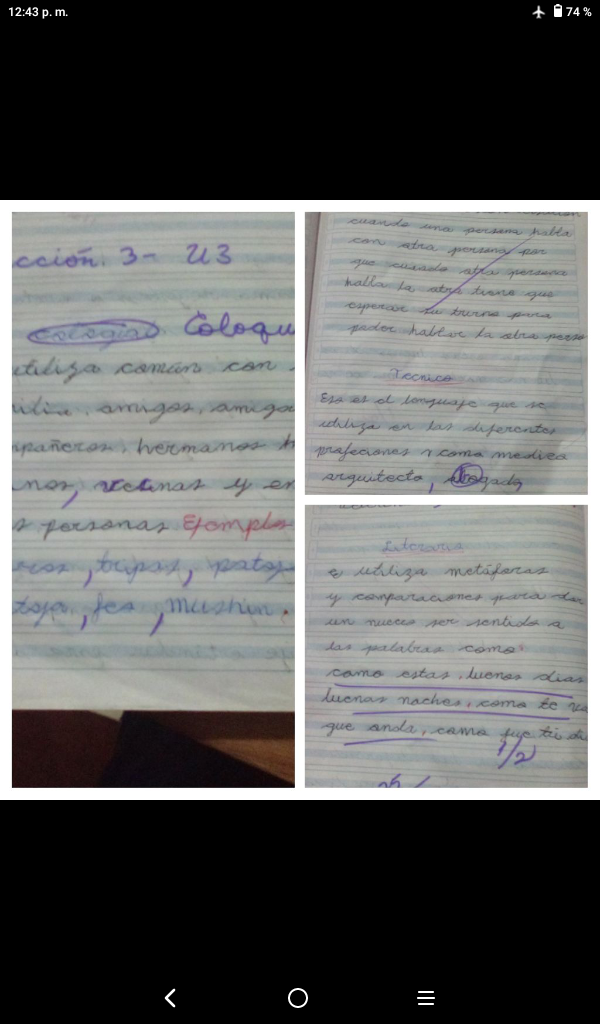 12:43 p. m.
74 %
cción. 3- U3
Coloqu
utiliza común con
ilia, amigos, amiga
pañeros, hermanos
nos, vecinas y en
s personas Ejemplos
, tripas,
, feo, mushin.
cuando una persona habla
con otra persona por
que cuando otra persona
habla la otra tiene que
esperar su turno para
poder hablar la otra perso
Técnico
Eso es el lenguaje que se
utiliza en las diferentes
profeciones como medica
arquitecto, abogado,
Literario
utiliza metáforas
y comparaciones para dar
un nuevo ser sentido a
las palabras como
como estas, buenos dias
buenas noches, como te va
que anda, como fue tú di
1/2